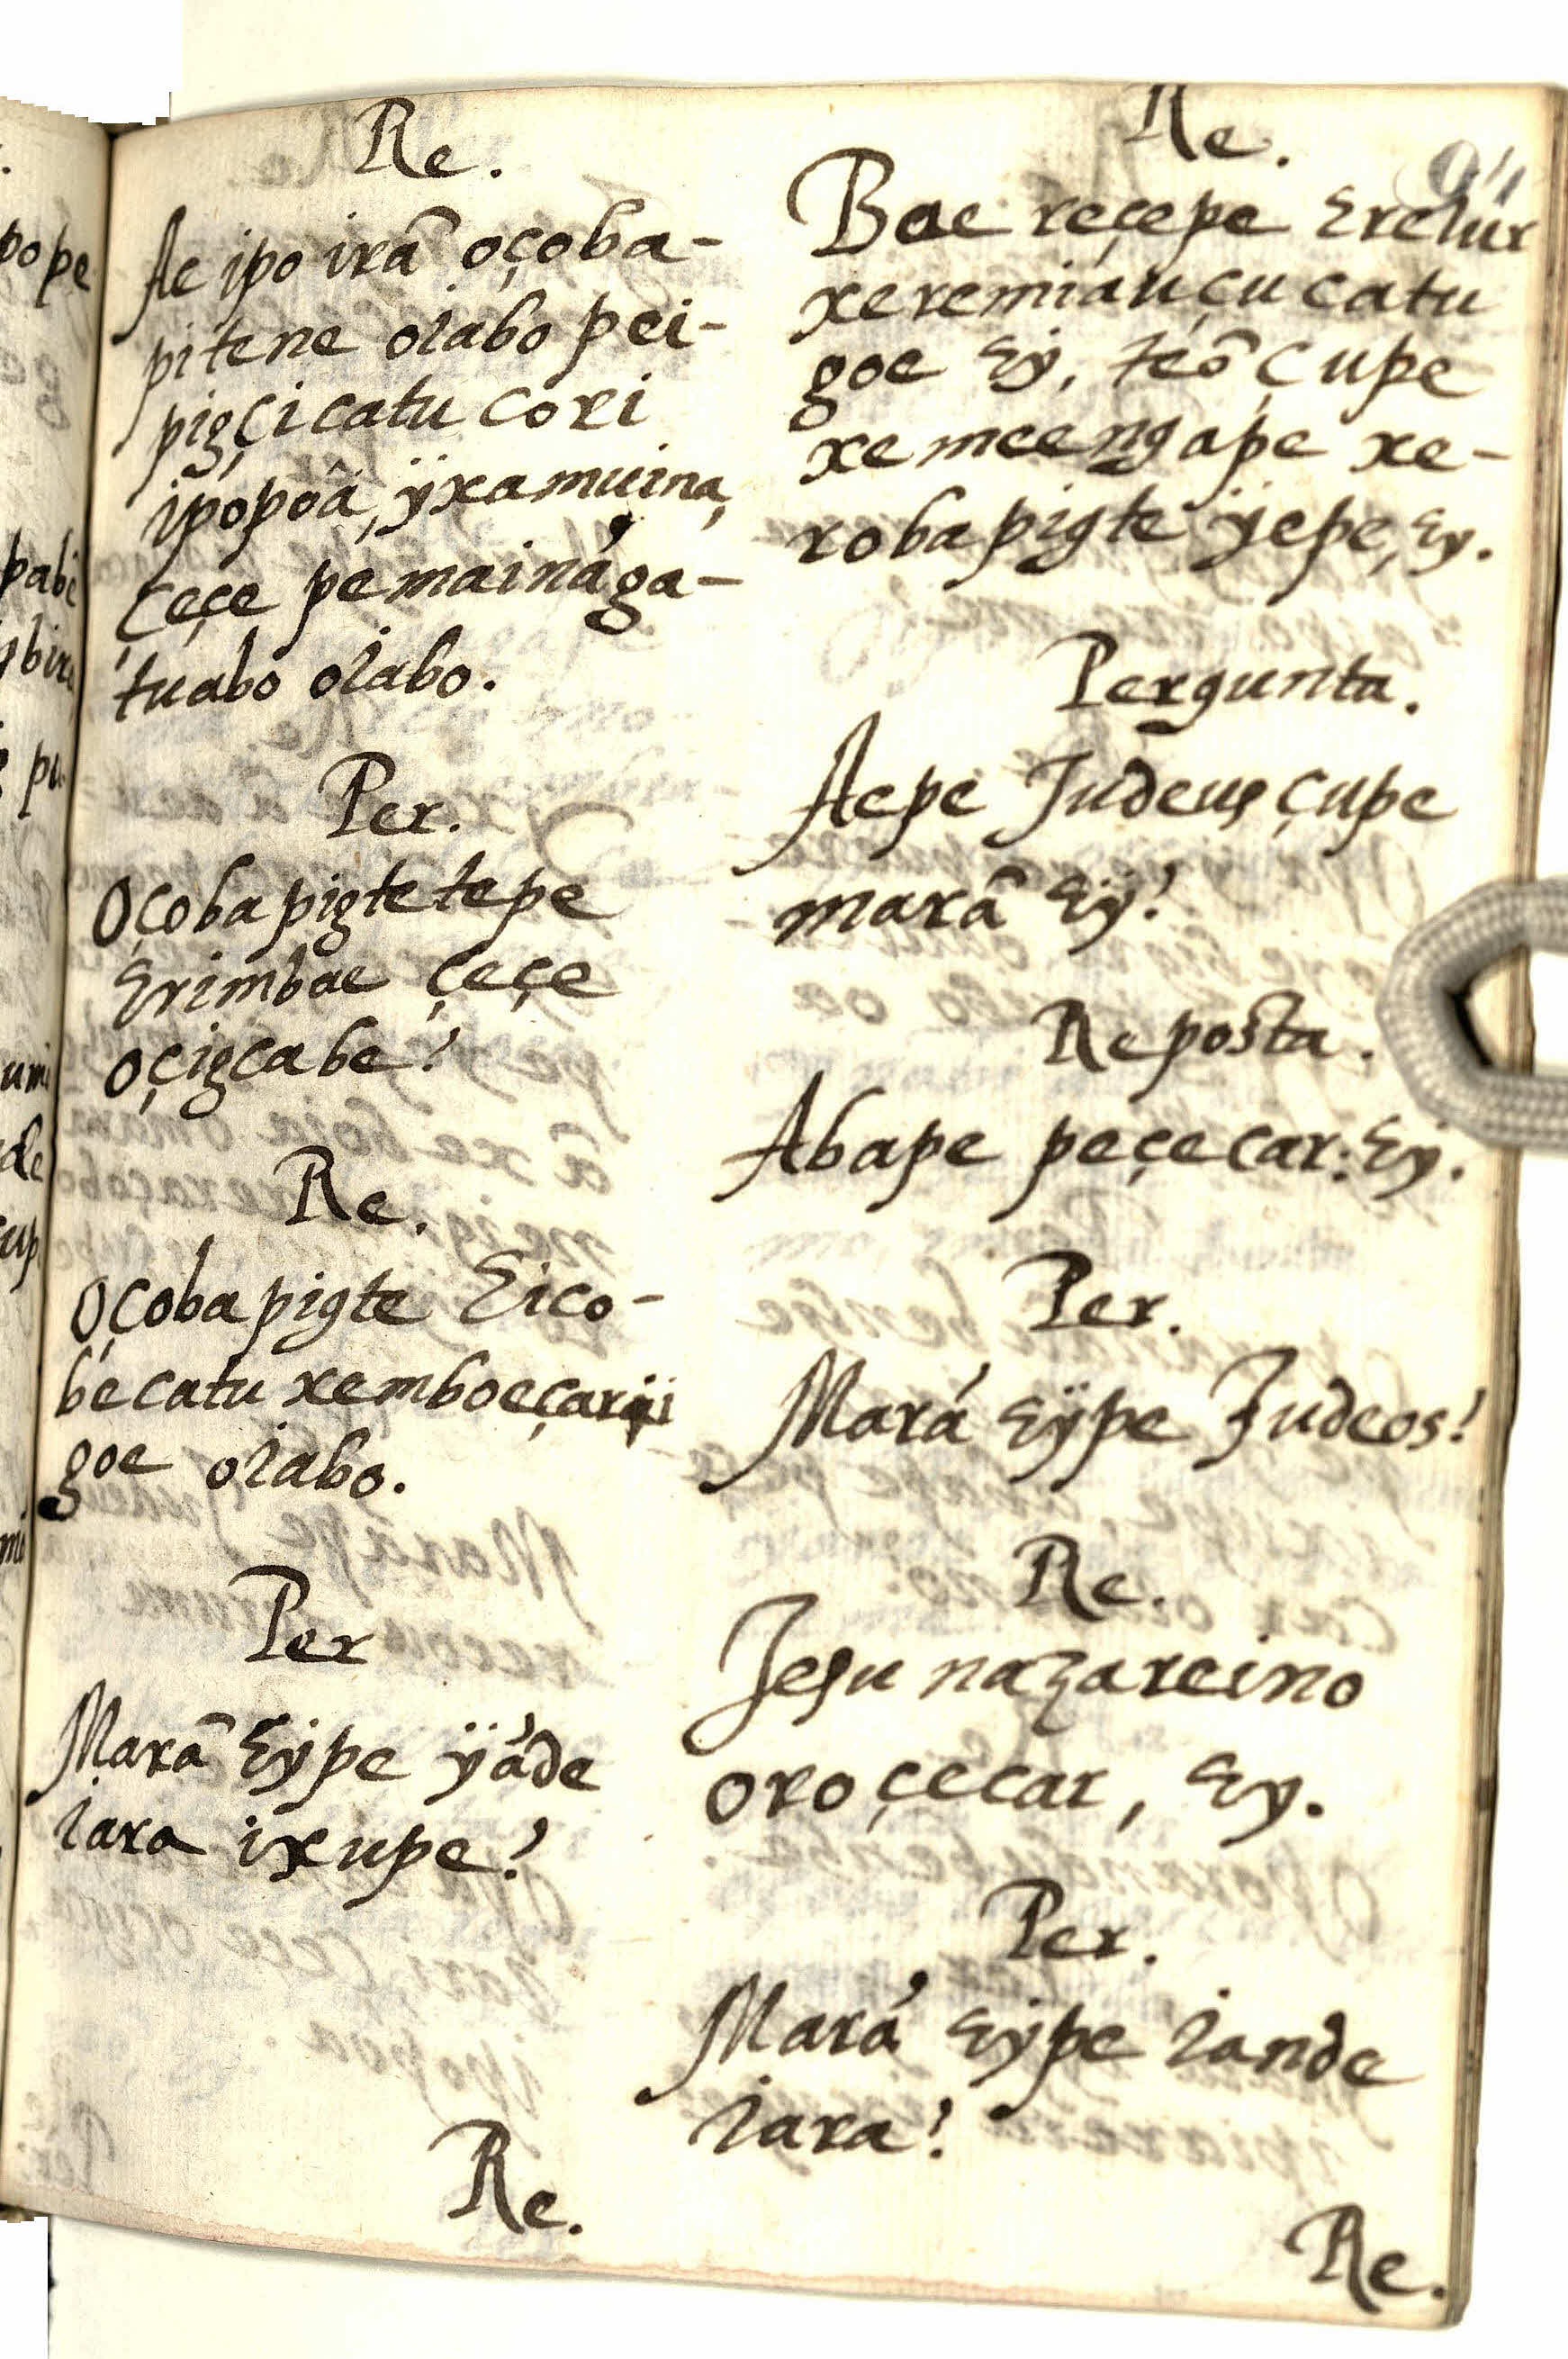 Re.
Ae ipo irã oçoba-
pitene oiabo pei-
pigçi catu cori
ipopoâ, ÿxamuina,
çeçe pe mainága-
tuabo oiabo.
Per.
Oçoba pigte tepe
Erimbae çeçe
oçigcabe?
Re.
Oçoba pigte Eico-
be catu xemboeçarÿi
goe oiabo.
Per
Marã Eÿpe ÿáde
iara ixupe?
Re.
Re.
Bae reçepe Ereiur
xeremiauçu catu
goe Eÿ, teõ çupe
xe meengape xe-
roba pigte ÿepe, Ey.
Pergunta.
Aepe Judeus çupe
marã Eÿ?
Reposta.
Abape peçecar: Eÿ.
Per.
Mará Eÿpe Judeos?
Re.
Jesu nazareino
oroçecar, Ey.
Per.
Mará Eÿpe iande
iara?
Re.